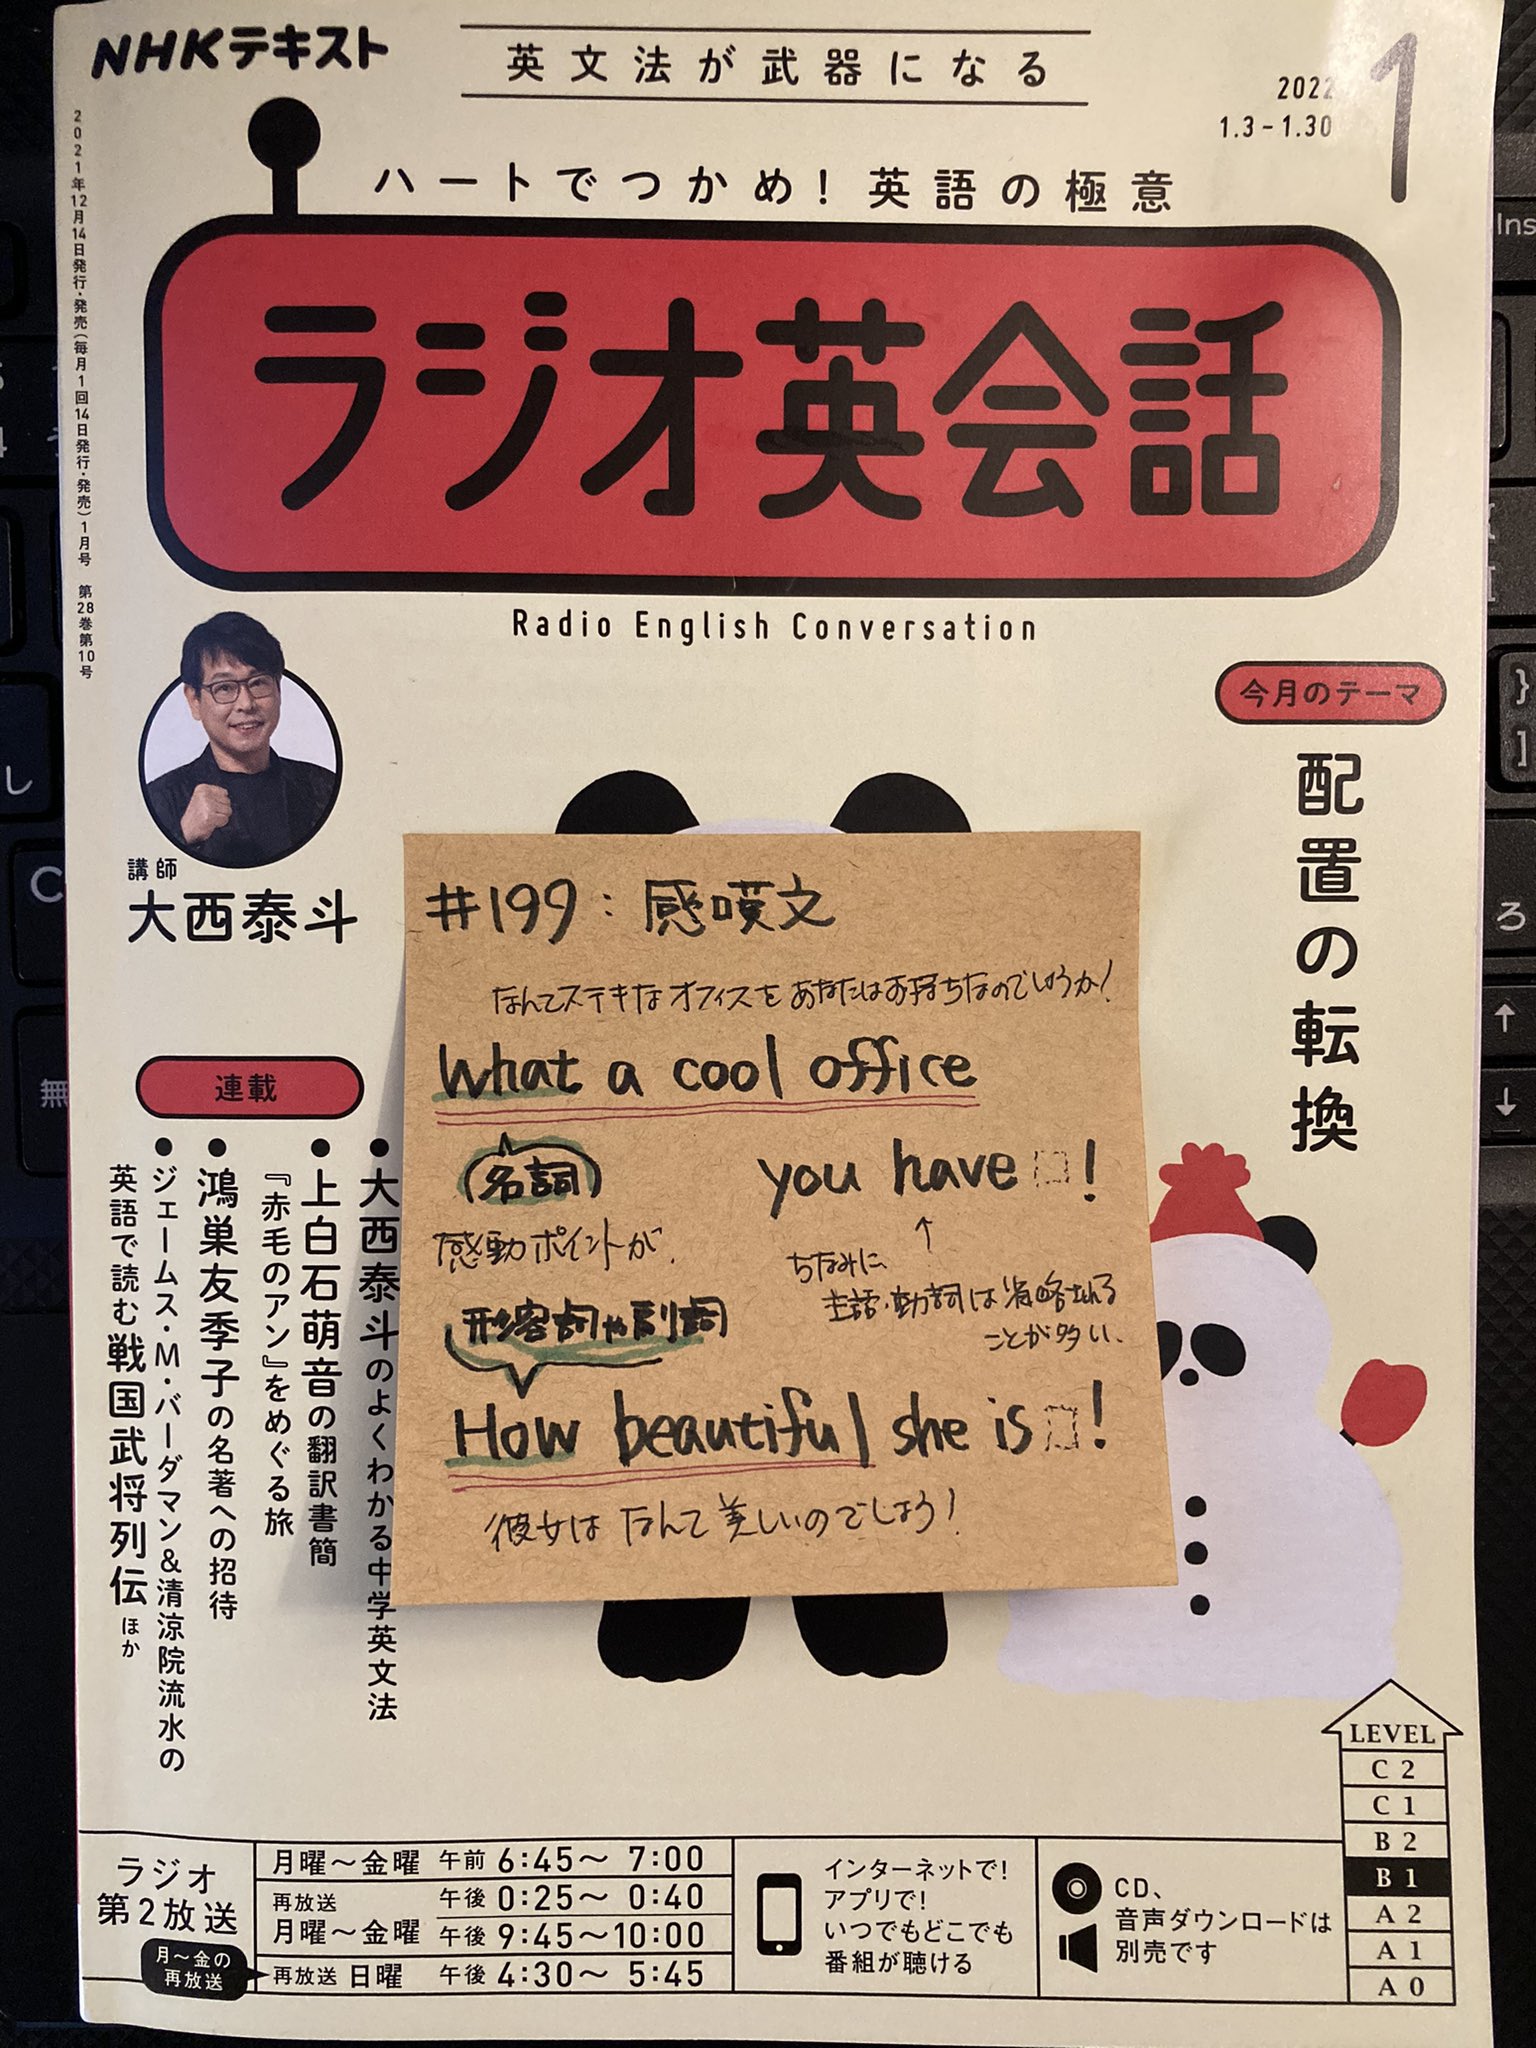 NHKテキスト
英文法が武器になる
2022
1.3-1.30
1
2021年12月14日発行・発売(毎月1回14日発行・発売)1月号 第28巻第10号
ハートでつかめ!英語の極意
ラジオ英会話
Radio English Conversation
講師
大西泰斗
今月のテーマ
配置の転換
連載
●大西泰斗のよくわかる中学英文法
●上白石萌音の翻訳書簡
『赤毛のアン』をめぐる旅
●鴻巣友季子の名著への招待
●ジェームス・M・バーダマン&清涼院流水の
英語で読む戦国武将列伝 ほか
#199:感嘆文
なんてステキなオフィスをあなたはお持ちなのでしょうか!
What a cool office
(名詞)
you have !
感動ポイントが、
↑
ちなみに、
主語・動詞は省略される
ことが多い、
形容詞や副詞
How beautiful she is !
彼女はなんて美しいのでしょう!
LEVEL
C2
C1
B2
B1
A2
A1
A0
ラジオ
第2放送
月〜金の
再放送
月曜〜金曜 午前 6:45〜 7:00
再放送 午後 0:25〜 0:40
月曜〜金曜 午後 9:45〜10:00
再放送 日曜 午後 4:30〜 5:45
インターネットで!
アプリで!
いつでもどこでも
番組が聴ける
CD、
音声ダウンロードは
別売です
Ins
し
C
無
ろ
}
]
↑
↓